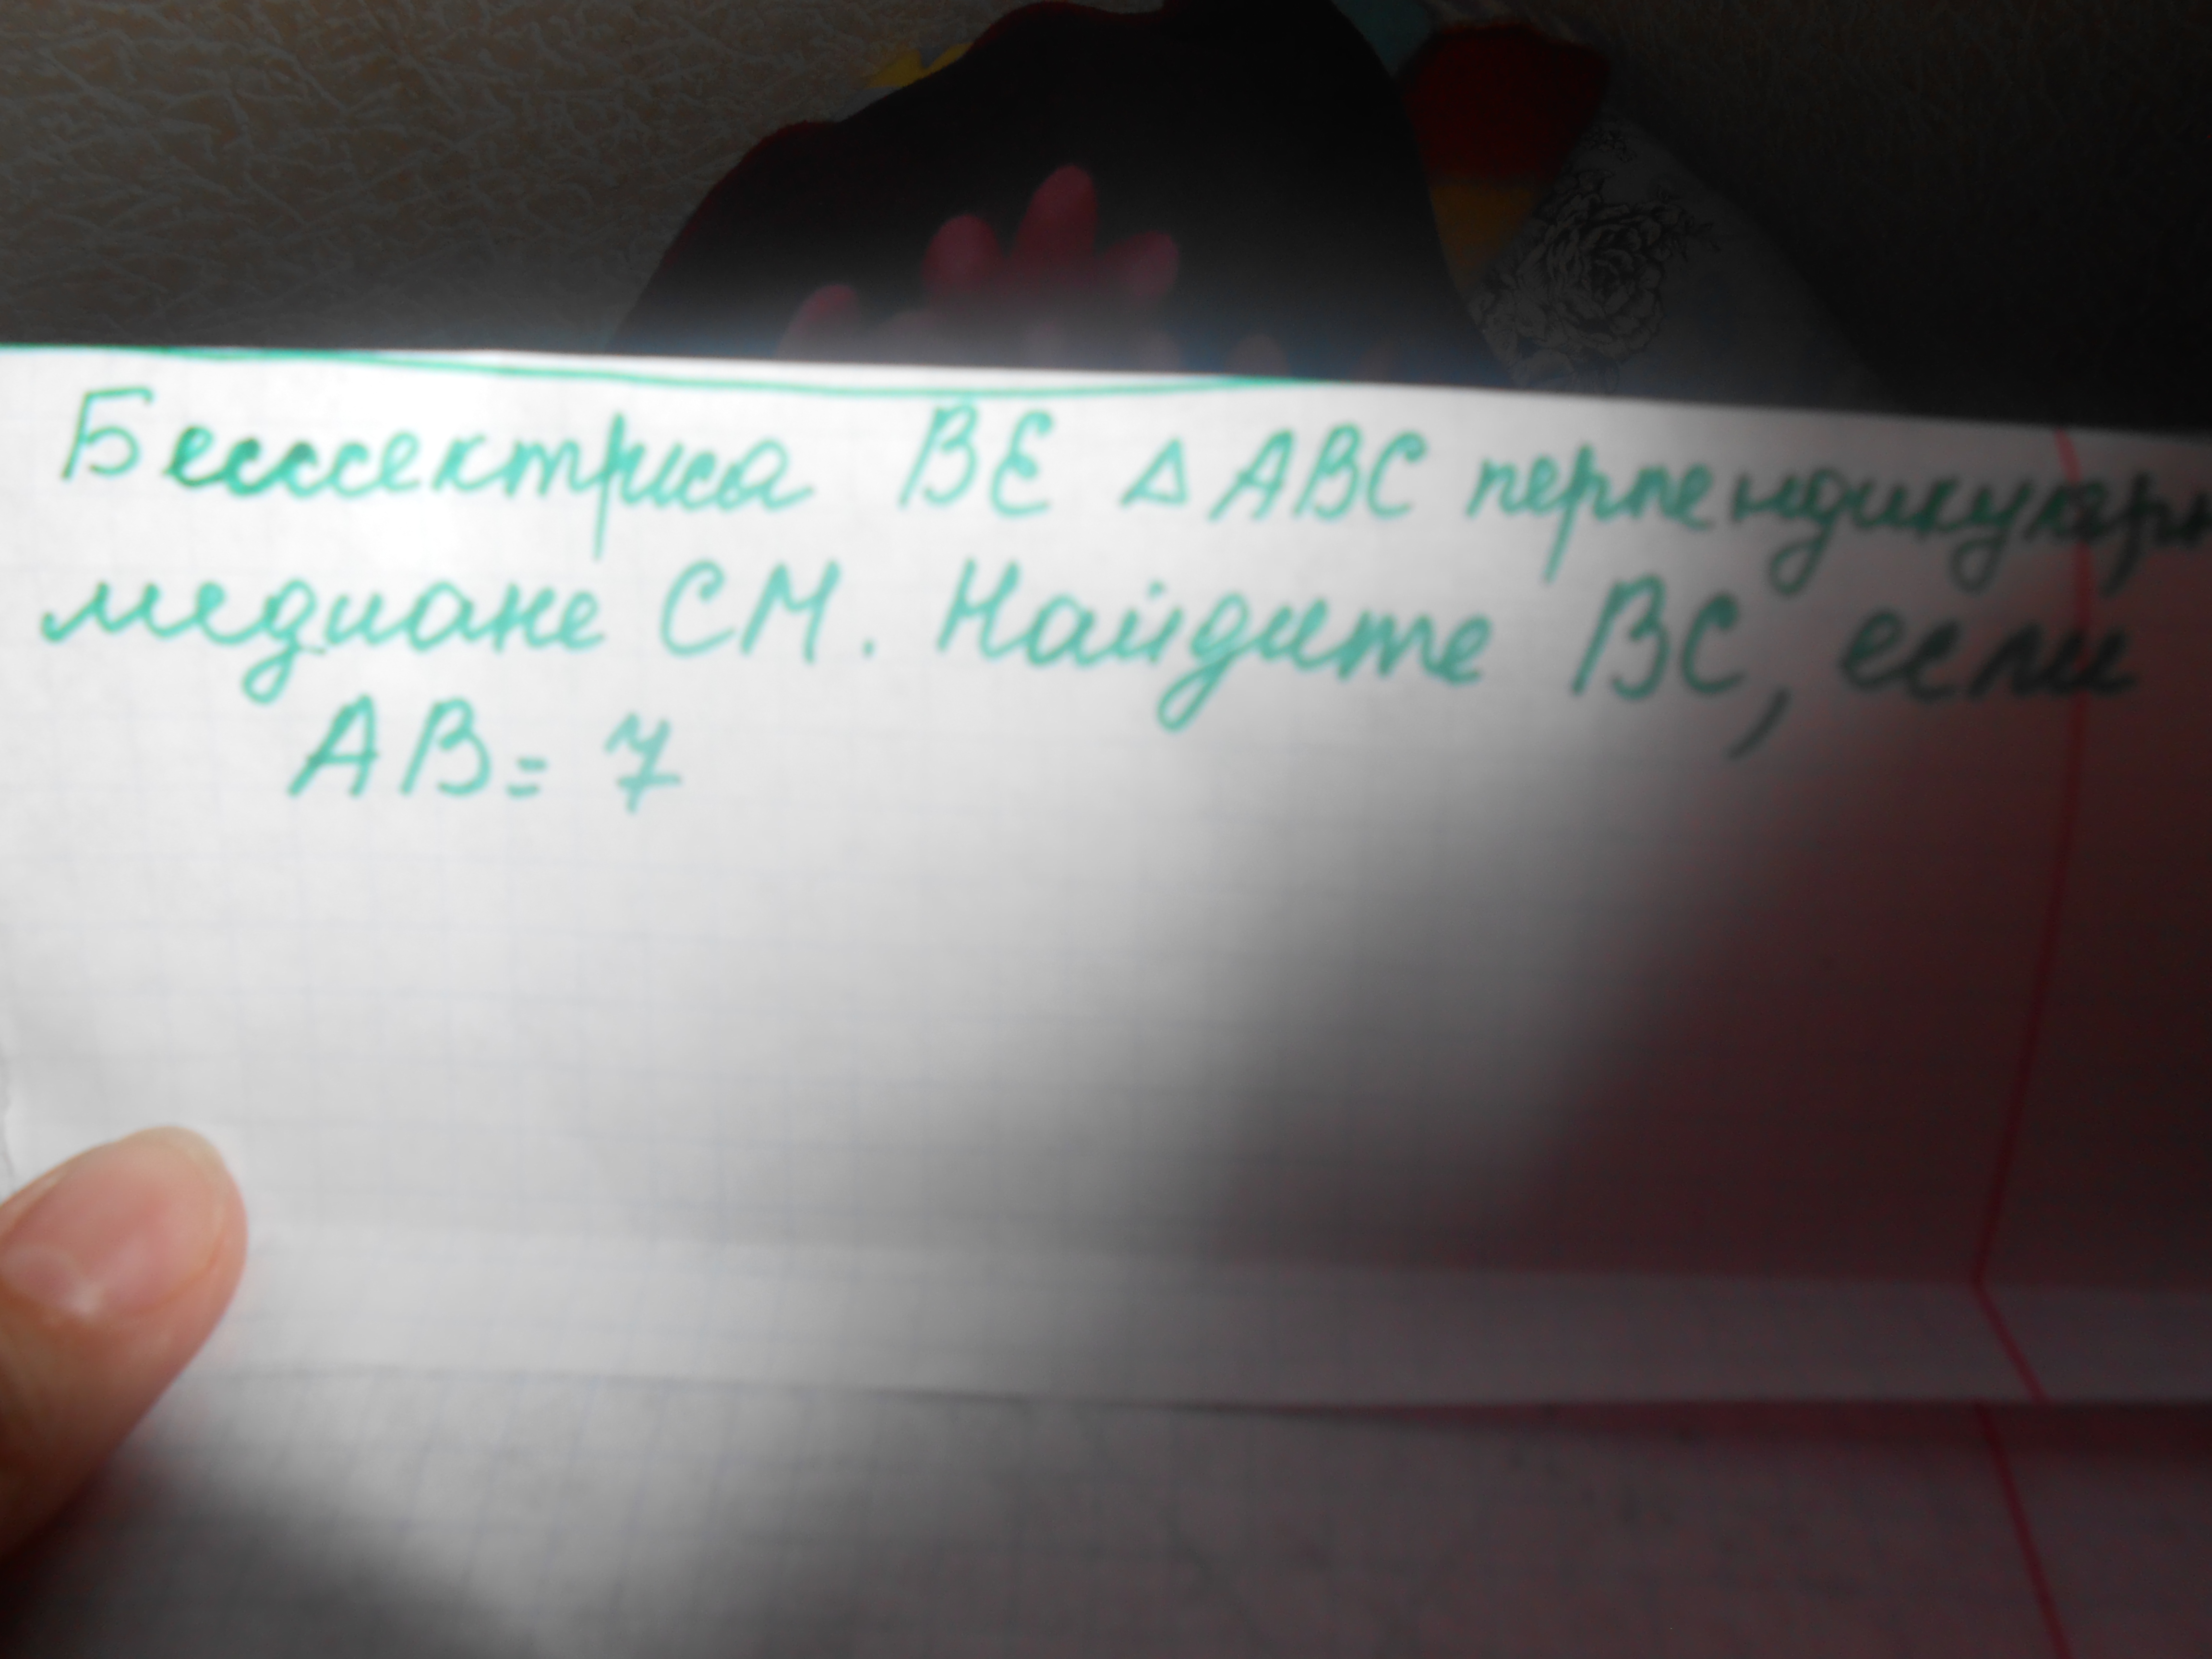 Бессектриса BE △ ABC перпендикулярн
медиане CM. Найдите BC, если
AB = 7